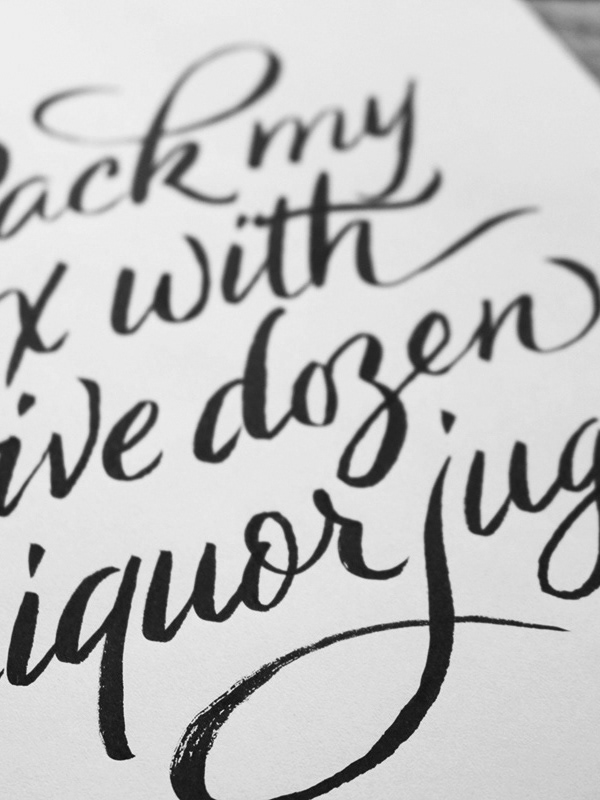 Pack my
x with
ive dozen
iquor jug